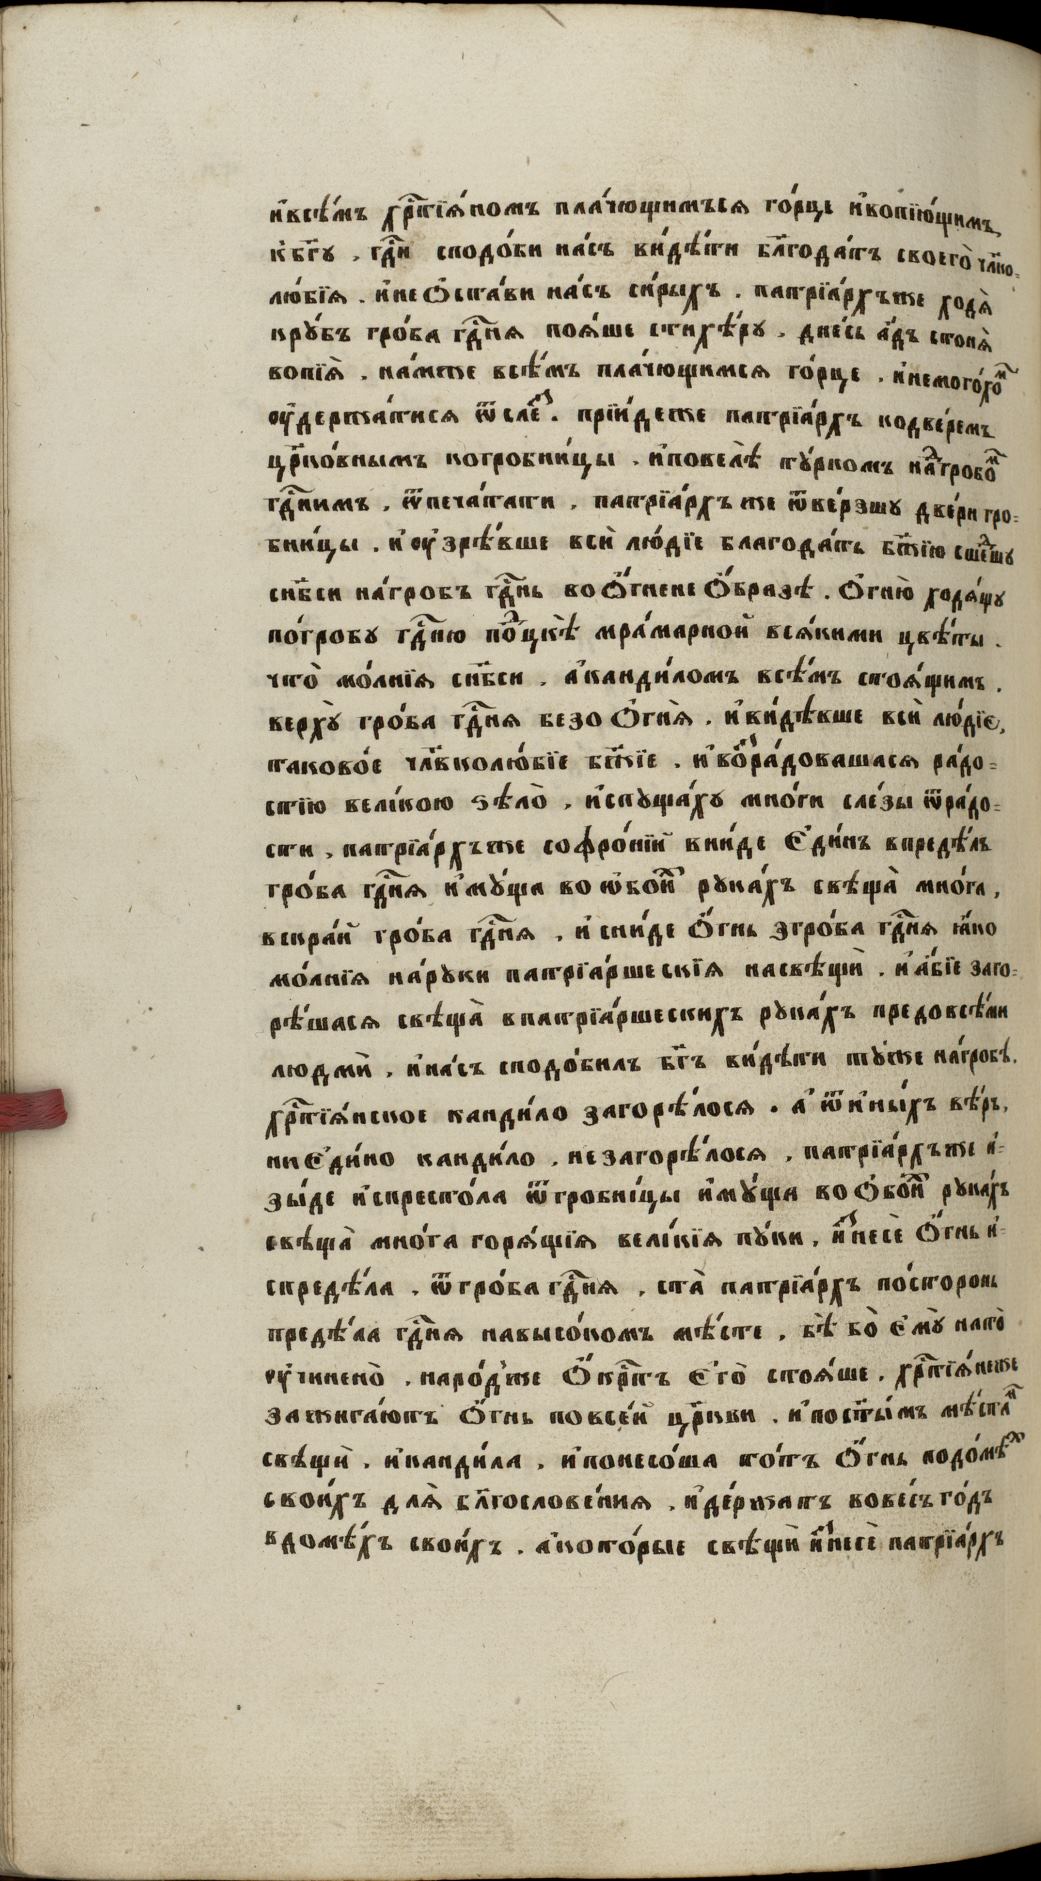 и҆всѣ́мъ хрⷭ҇тїѧ́номъ пла́чющимъсѧ го́рце и҆вопїю́щимъ,
к҆бг҃ꙋ . гдⷭ҇и сподо́би на́съ ви́дѣти бл҃года́ть своего̀ чл҃ко=
лю́бїѧ . и҆не Ѻ҆ста́ви на́съ си́рыхъ . патрїа́рхъже ходѧ̀
крꙋ́гъ гро́ба гдⷭ҇нѧ поѧ́ше стихѣ́рꙋ . дне́сь а҆́дъ стонѧ̀
вопїѧ̀ . на́мже всѣ́мъ пла́чющимсѧ го́рце . и҆немого́хоⷨ
ᲂу҆держа́тисѧ ѿ слеⷥ҇ . прїи́демже патрїа́рхъ кодве́remъ
цр҃ко́внымъ когробни́цы . и҆повелѣ̀ тꙋ́ркомъ наⷣгробоⷨ
гдⷭ҇нимъ . ѿпеча́тати . патрїа́рхъ же ѿве́рзшꙋ две́ри гро=
бни́цы . и҆ ᲂу҆зрѣ́вше всѝ лю́дїе благода́ть бж҃їю сшеⷣшꙋ
сн҃бси на́гробъ гдⷭ҇нь во Ѻ҆́гнене Ѻ҆́бразѣ . Ѻ҆гню̀ ходѧ́щꙋ
по́гробꙋ гдⷭ҇ню по́ⷣцкѣ мра́марной всѧ́кими цвѣ́ты .
что̀ мо́лнїѧ сн҃бси . а҆канди́ломъ всѣ́мъ стоѧ́щимъ .
верхꙋ̀ гро́ба гдⷭ҇нѧ безо Ѻ҆гнѧ̀ . и҆ви́дѣвше всѝ лю́дїе,
таково́е чл҃вколю́бїе бж҃їе . и҆воⷥра́довашасѧ ра́до=
стїю вели́кою ѕѣло̀ . и҆спꙋща́хꙋ мно́ги сле́зы ѿра́до=
сти . патрїа́рхъже софро́нїй вни́де Е҆ди́нъ впредѣ́лъ
гро́ба гдⷭ҇нѧ и҆мꙋ́ща во ѡ҆бои́ⷯ рꙋка́хъ свѣща̀ мно́га,
вскра́й гро́ба гдⷭ҇нѧ . и҆ сни́де Ѻ҆́гнь згро́ба гдⷭ҇нѧ ꙗ҆́ко
мо́лнїѧ на́рꙋки патрїа́ршескїѧ насвѣщѝ . и҆ а҆́бїе заго=
рѣ́шасѧ свѣща̀ впатрїа́ршескихъ рꙋка́хъ предовсѣ́ми
людмѝ . и҆на́съ сподо́билъ бг҃ъ ви́дѣти тꙋ́же на́гробѣ.
хрⷭ҇тїѧ́нское канди́ло загорѣ́лосѧ . а҆ ѿи҆ны́хъ вѣ́ръ,
ни Е҆ди́но канди́ло . незагорѣ́лосѧ . патрїа́рхъже и҆=
зы́де и҆спресто́ла ѿгробни́цы и҆мꙋ́щи во Ѻ҆бои́ⷯ рꙋка́хъ
свѣща̀ мно́га горѧ́щїѧ вели́кїѧ пꙋ́ки . и҆ⷥнесѐ Ѻ҆́гнь и҆=
спредѣ́ла . ѿгро́ба гдⷭ҇нѧ . ста̀ патрїа́рхъ по́сторонь
предѣ́ла гдⷭ҇нѧ навысо́комъ мѣ́сте . бѣ̀ бо̀ є҆мꙋ̀ нато̀
ᲂу҆чинено̀ . наро́дже Ѻ҆́крⷭ҇тъ Е҆гѡ̀ стоѧ́ше . хрⷭ҇тїѧ́неже
зажига́ютъ Ѻ҆́гнь повсе́й цр҃кви . и҆постⷭ҇ы́мъ мѣ́стаⷨ
свѣщѝ . и҆канди́ла . и҆понесо́ша то́тъ Ѻ҆́гнь подо́мѣⷯ
свои́хъ длѧ̀ бл҃гослове́нїѧ . и҆де́ржатъ вове́съ го́дъ
вдомѣ́хъ свои́хъ . а҆кото́рые свѣщѝ и҆ⷥнесѐ патрїа́рхъ